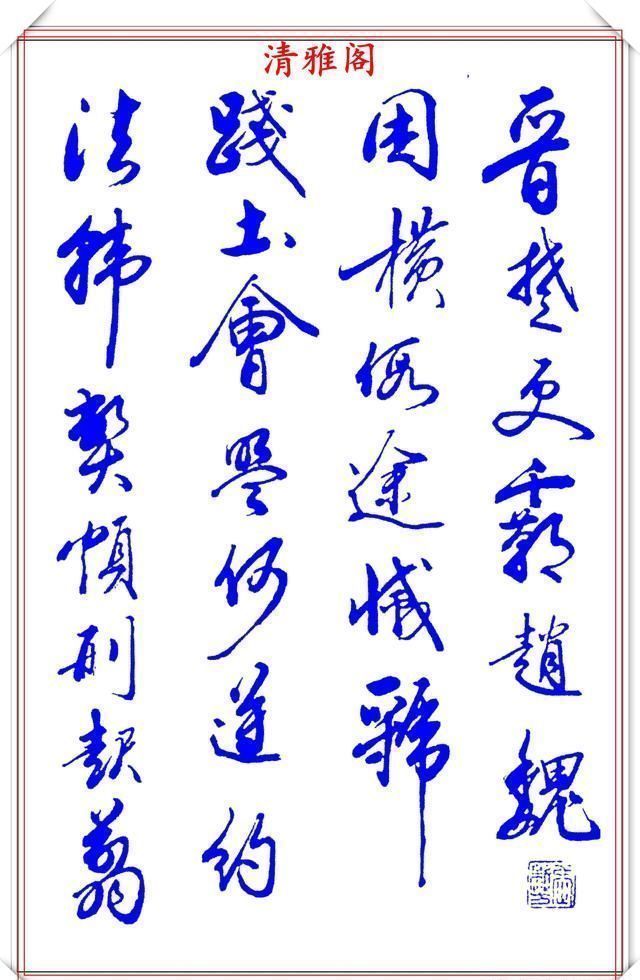 清雅阁
晋楚更霸趙魏
困横假途滅虢
踐土會盟何遵約
法韓弊煩刑起翦